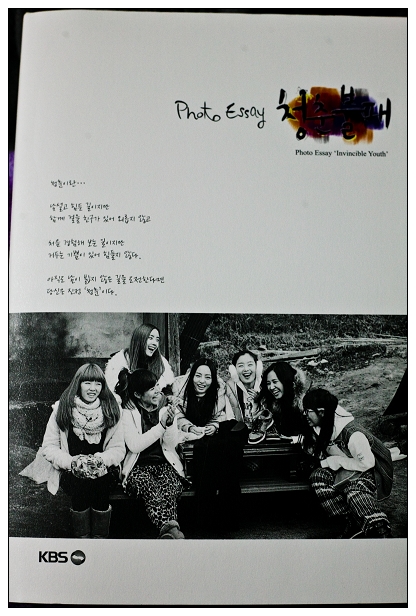 Photo Essay 청춘불패
Photo Essay 'Invincible Youth'
청춘이란...
낯설고 힘든 길이지만
함께 걸을 친구가 있어 외롭지 않고
처음 경험해 보는 길이지만
거두는 기쁨이 있어 힘들지 않다.
아직도 않은 길을 도전한다면
당신은 진정 '청춘'이다.
KBS